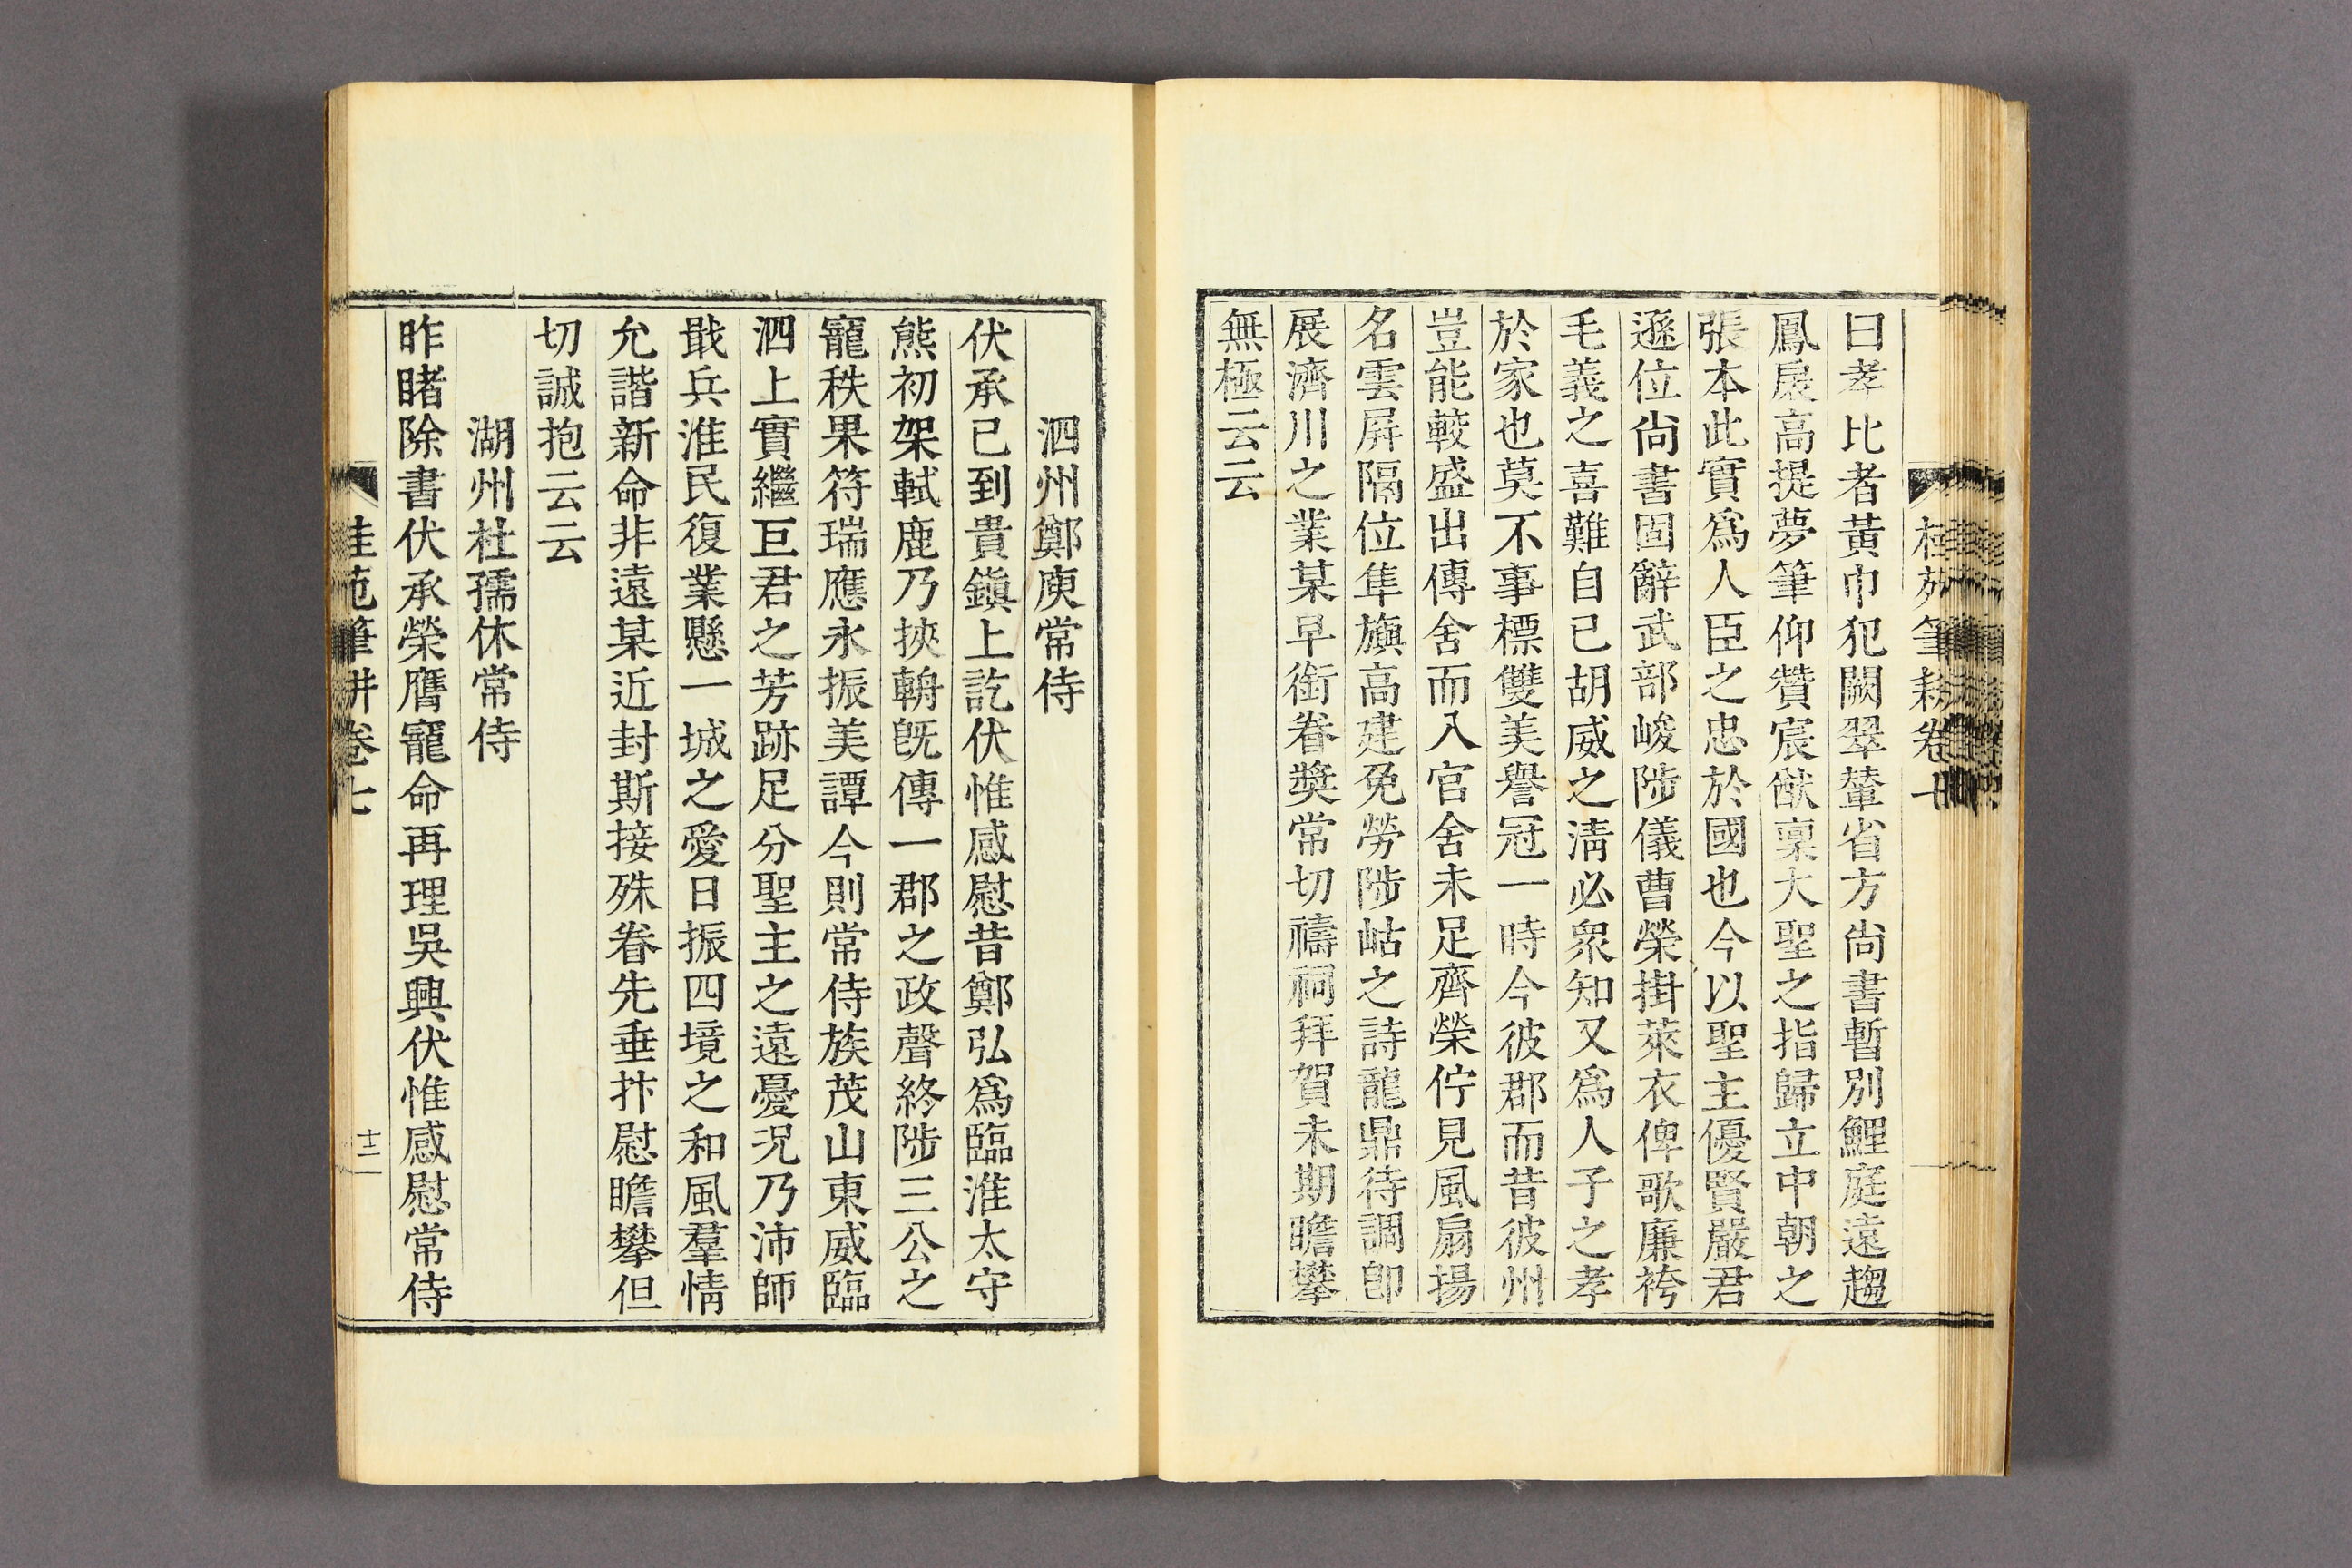 曰孝比者黃巾犯闕翠輦省方尙書暫別鯉庭遠趨
鳳扆高提夢筆仰贊宸猷稟大聖之指歸立中朝之
張本此實爲人臣之忠於國也今以聖主優賢嚴君
遜位尙書固辭武部峻陟儀曹榮掛萊衣俾歌廉袴
毛義之喜難自已胡威之淸必眾知又爲人子之孝
於家也莫不事標雙美譽冠一時今彼郡而昔彼州
豈能較盛出傳舍而入官舍未足齊榮佇見風扇揚
名雲屛隔位隼旟高建免勞陟岵之詩龍鼎待調卽
展濟川之業某早銜眷奬常切禱祠拜賀未期瞻攀
無極云云
泗州鄭庾常侍
伏承已到貴鎭上訖伏惟感慰昔鄭弘爲臨淮太守
熊初架軾鹿乃挾輈旣傳一郡之政聲終陟三公之
寵秩果符瑞應永振美譚今則常侍族茂山東威臨
泗上實繼巨君之芳跡足分聖主之遠憂况乃沛師
戢兵淮民復業懸一城之愛日振四境之和風羣情
允諧新命非遠某近封斯接殊眷先垂抃慰瞻攀但
切誠抱云云
湖州杜孺休常侍
昨睹除書伏承榮膺寵命再理吳興伏惟感慰常侍
桂苑筆耕卷七
十二